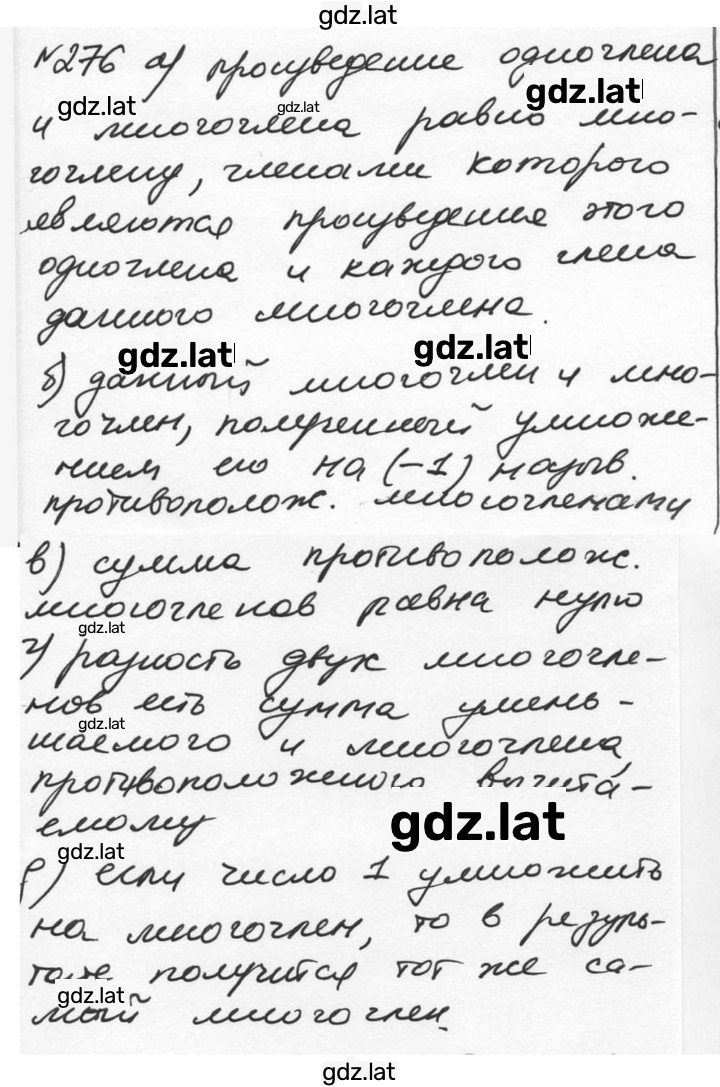 gdz.lat
№276 а) произведение одночлена
gdz.lat gdz.lat gdz.lat
и многочлена равно мно-
гочлену, членами которого
являются произведения этого
одночлена и каждого члена
данного многочлена.
gdz.lat gdz.lat
б) данный многочлен и мно-
гочлен, полученный умноже-
нием его на (-1) назыв.
противополож. многочленами
в) сумма противополож.
многочленов равна нулю
gdz.lat
г) разность двух многочле-
нов есть сумма умень-
gdz.lat
шаемого и многочлена,
противоположного вычита-
емому
gdz.lat
gdz.lat
д) если число 1 умножить
на многочлен, то в резуль-
тате получится тот же са-
gdz.lat
мый многочлен.
gdz.lat